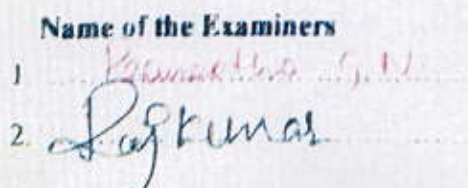 Name of the Examiners
1 G.N.
2. Rajkumar